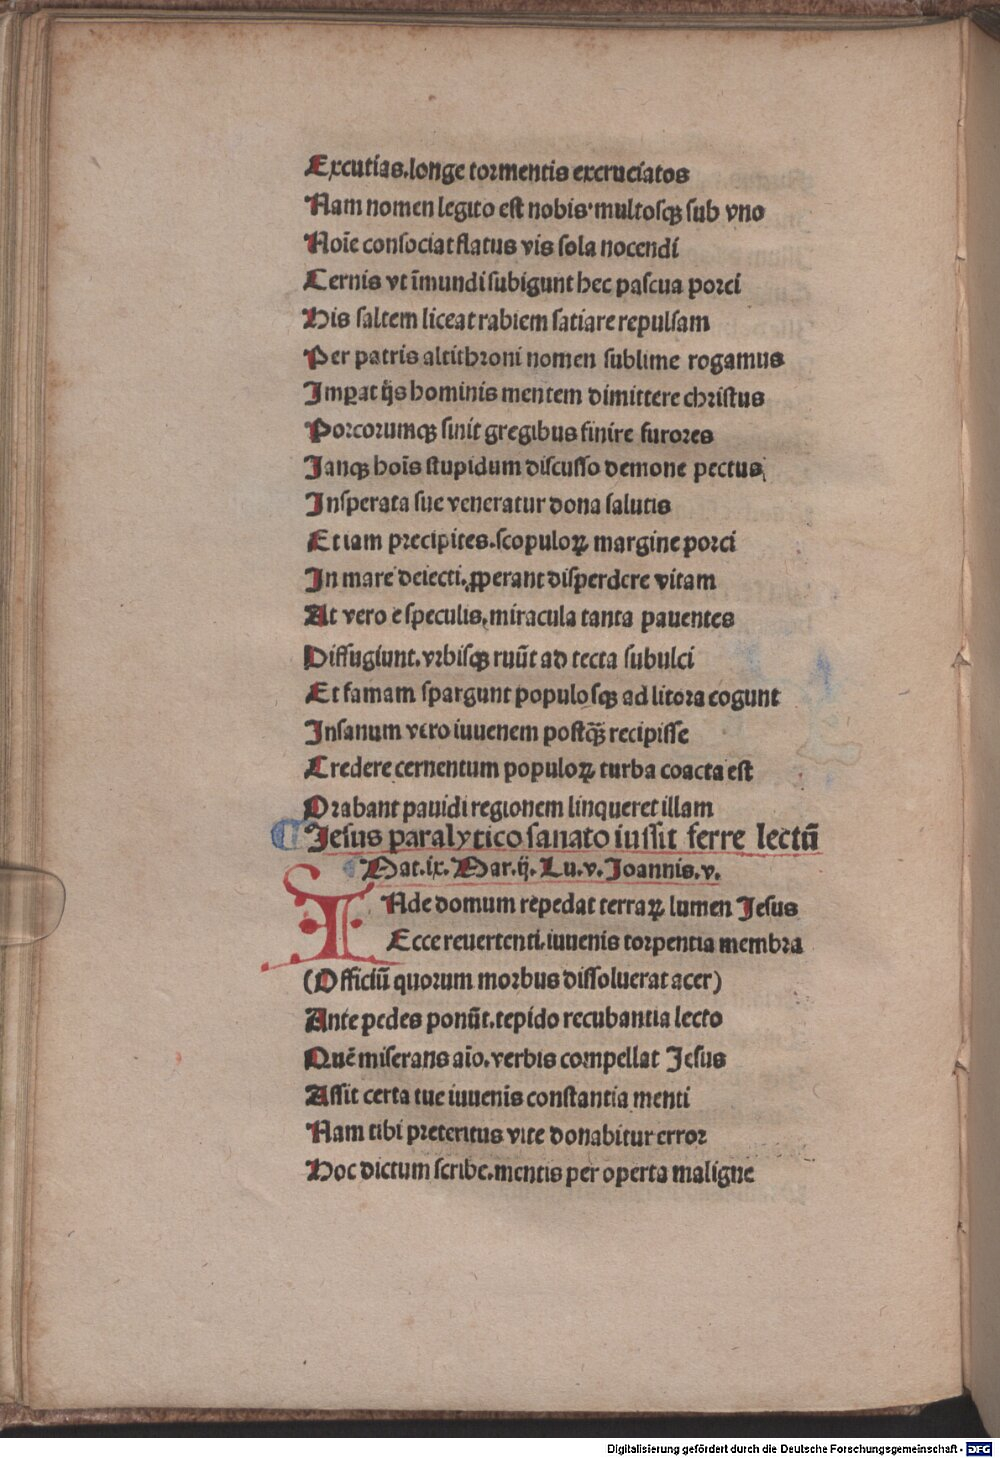 Excutias.longe tormentis excruciatos
Nam nomen legito est nobis·multosqꝫ sub vno
Noīe consociat flatus vis sola nocendi
Cernis vt īmundi subigunt hec pascua porci
His saltem liceat rabiem satiare repulsam
Per patris altithroni nomen sublime rogamus
Imꝑat ijs hominis mentem dimittere christus
Porcorumqꝫ sinit gregibus finire furores
Janqꝫ hoīs stupidum discusso demone pectus
Insperata sue veneratur dona salutis
Et iam precipites.scopuloꝝ margine porci
In mare deiecti.ꝓperant disperdere vitam
At vero e speculis.miracula tanta pauentes
Diffugiunt.vrbisqꝫ ruūt ad tecta subulci
Et famam spargunt populosqꝫ ad litora cogunt
Insanum vero iuuenem postꝗ̄ recipisse
Credere cernentum populoꝝ turba coacta est
Orabant pauidi regionem linqueret illam
Jesus paralytico sanato iussit ferre lectū
Mat.ix.Mar.ij.Lu.v.Joannis.v.
INde domum repedat terraꝝ lumen Jesus
Ecce reuertenti.iuuenis torpentia membra
(Officiū quorum morbus dissoluerat acer)
Ante pedes ponūt.tepido recubantia lecto
Quē miserans aīo.verbis compellat Jesus
Assit certa tue iuuenis constantia menti
Nam tibi preteritus vite donabitur error
Hoc dictum scribe.mentis per operta maligne
Digitalisierung gefördert durch die Deutsche Forschungsgemeinschaft - DFG